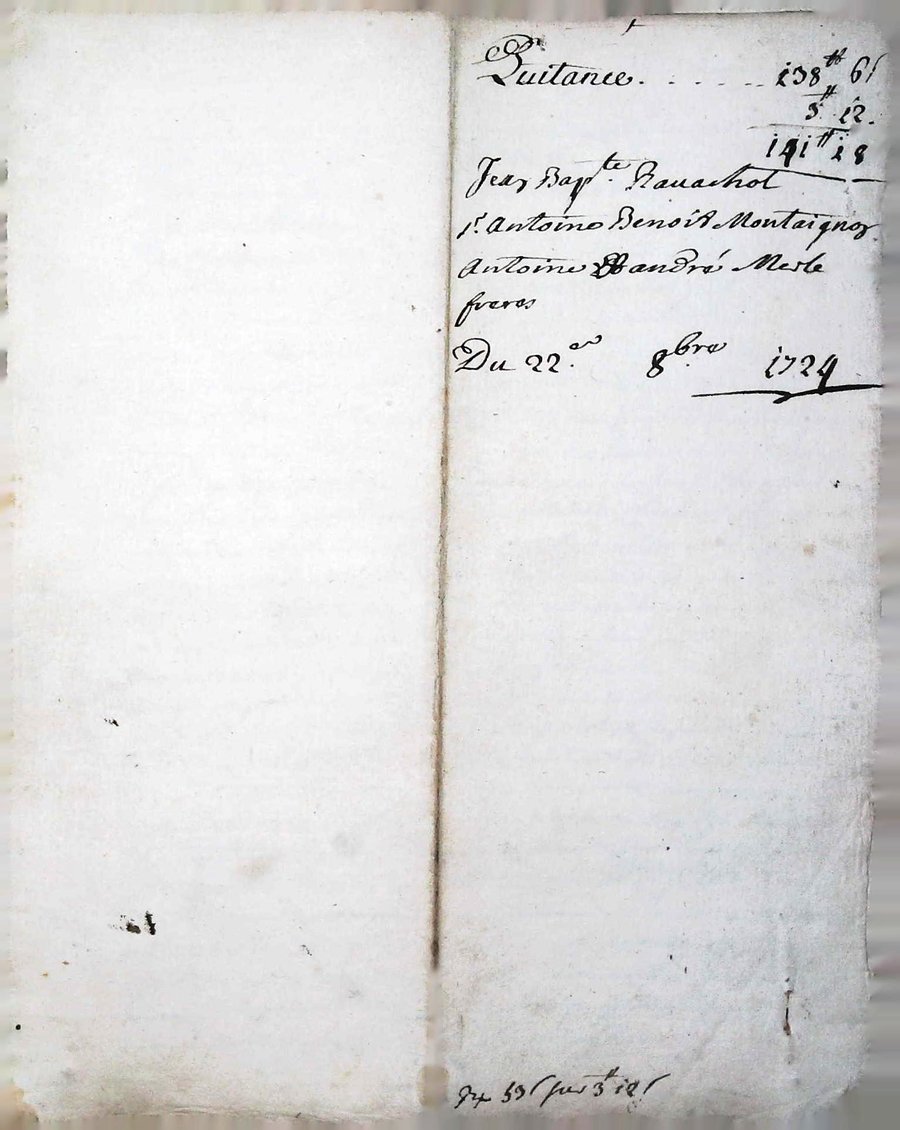 Quitance. . . . . . 138# 6s
3# 12.
141# 18
Jean Bapte. Ravachol
sr. Antoine Benoit Montaignon
Antoine & andré Merle
freres
Du 22.e 8.bre 1724